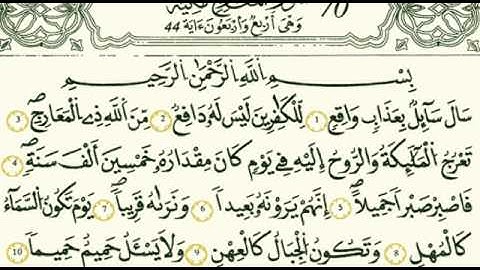 وَهِيَ أَرْبَعٌ وَأَرْبَعُونَ ءَايَة 44
بِسْمِ اللَّهِ الرَّحْمَٰنِ الرَّحِيمِ
سَالَ سَآئِلٌۢ بِعَذَابٍ وَاقِعٍ 1 لِّلْكَٰفِرِينَ لَيْسَ لَهُۥ دَافِعٌ 2 مِّنَ اللَّهِ ذِے الْمَعَارِجِ 3
تَعْرُجُ الْمَلَٰٓئِكَةُ وَالرُّوحُ إِلَيْهِ فِے يَوْمٍ كَانَ مِقْدَارُهُۥ خَمْسِينَ أَلْفَ سَنَةٍ 4
فَاصْبِرْ صَبْراً جَمِيلاً 5 اِنَّهُمْ يَرَوْنَهُۥ بَعِيداً 6 وَنَرَىٰهُ قَرِيباً 7 يَوْمَ تَكُونُ السَّمَآءُ
كَالْمُهْلِ 8 وَتَكُونُ الْجِبَالُ كَالْعِهْنِ 9 وَلَا يَسْـَٔلُ حَمِيمٌ حَمِيماً 10